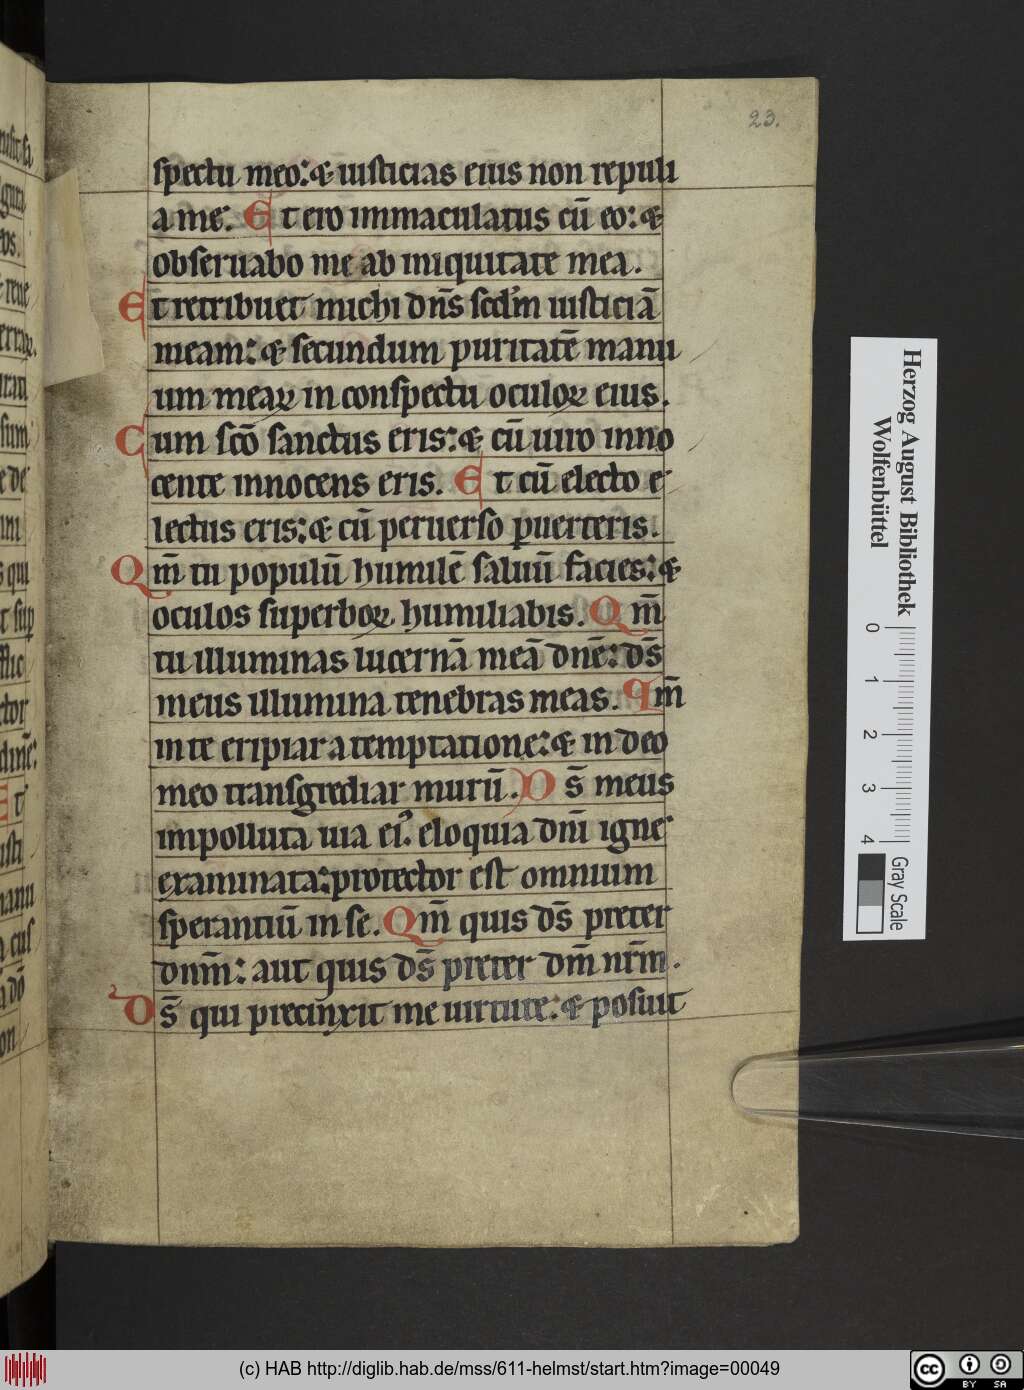 23.
spectu meo: & iusticias eius non repuli
a me. Et ero immaculatus cū eo: &
obseruabo me ab iniquitate mea.
Et retribuet michi dn̄s scdm̄ iusticiā
meam: & secundum puritatē manu
um meaꝝ in conspectu oculoꝝ eius.
Cum scō sanctus eris: & cū uiro inno
cente innocens eris. Et cū electo e
lectus eris: & cū peruerso puerteris.
Qm̄ tu populū humilē saluū facies: &
oculos superboꝝ humiliabis. Qm̄
tu illuminas lucernā meā dnē: ds̄
meus illumina tenebras meas. Qm̄
in te eripiar a temptatione: & in deo
meo transgrediar murū. Ds̄ meus
impolluta uia ei᾽ eloquia dn̄i igne
examinata: protector est omnium
sperantiū in se. Qm̄ quis ds̄ preter
dnm̄: aut quis ds̄ preter dm̄ nr̄m.
Ds̄ qui precinxit me uirtute: & posuit
Herzog August Bibliothek
Wolfenbüttel
0 1 2 3 4
Gray Scale
(c) HAB http://diglib.hab.de/mss/611-helmst/start.htm?image=00049
cc BY SA